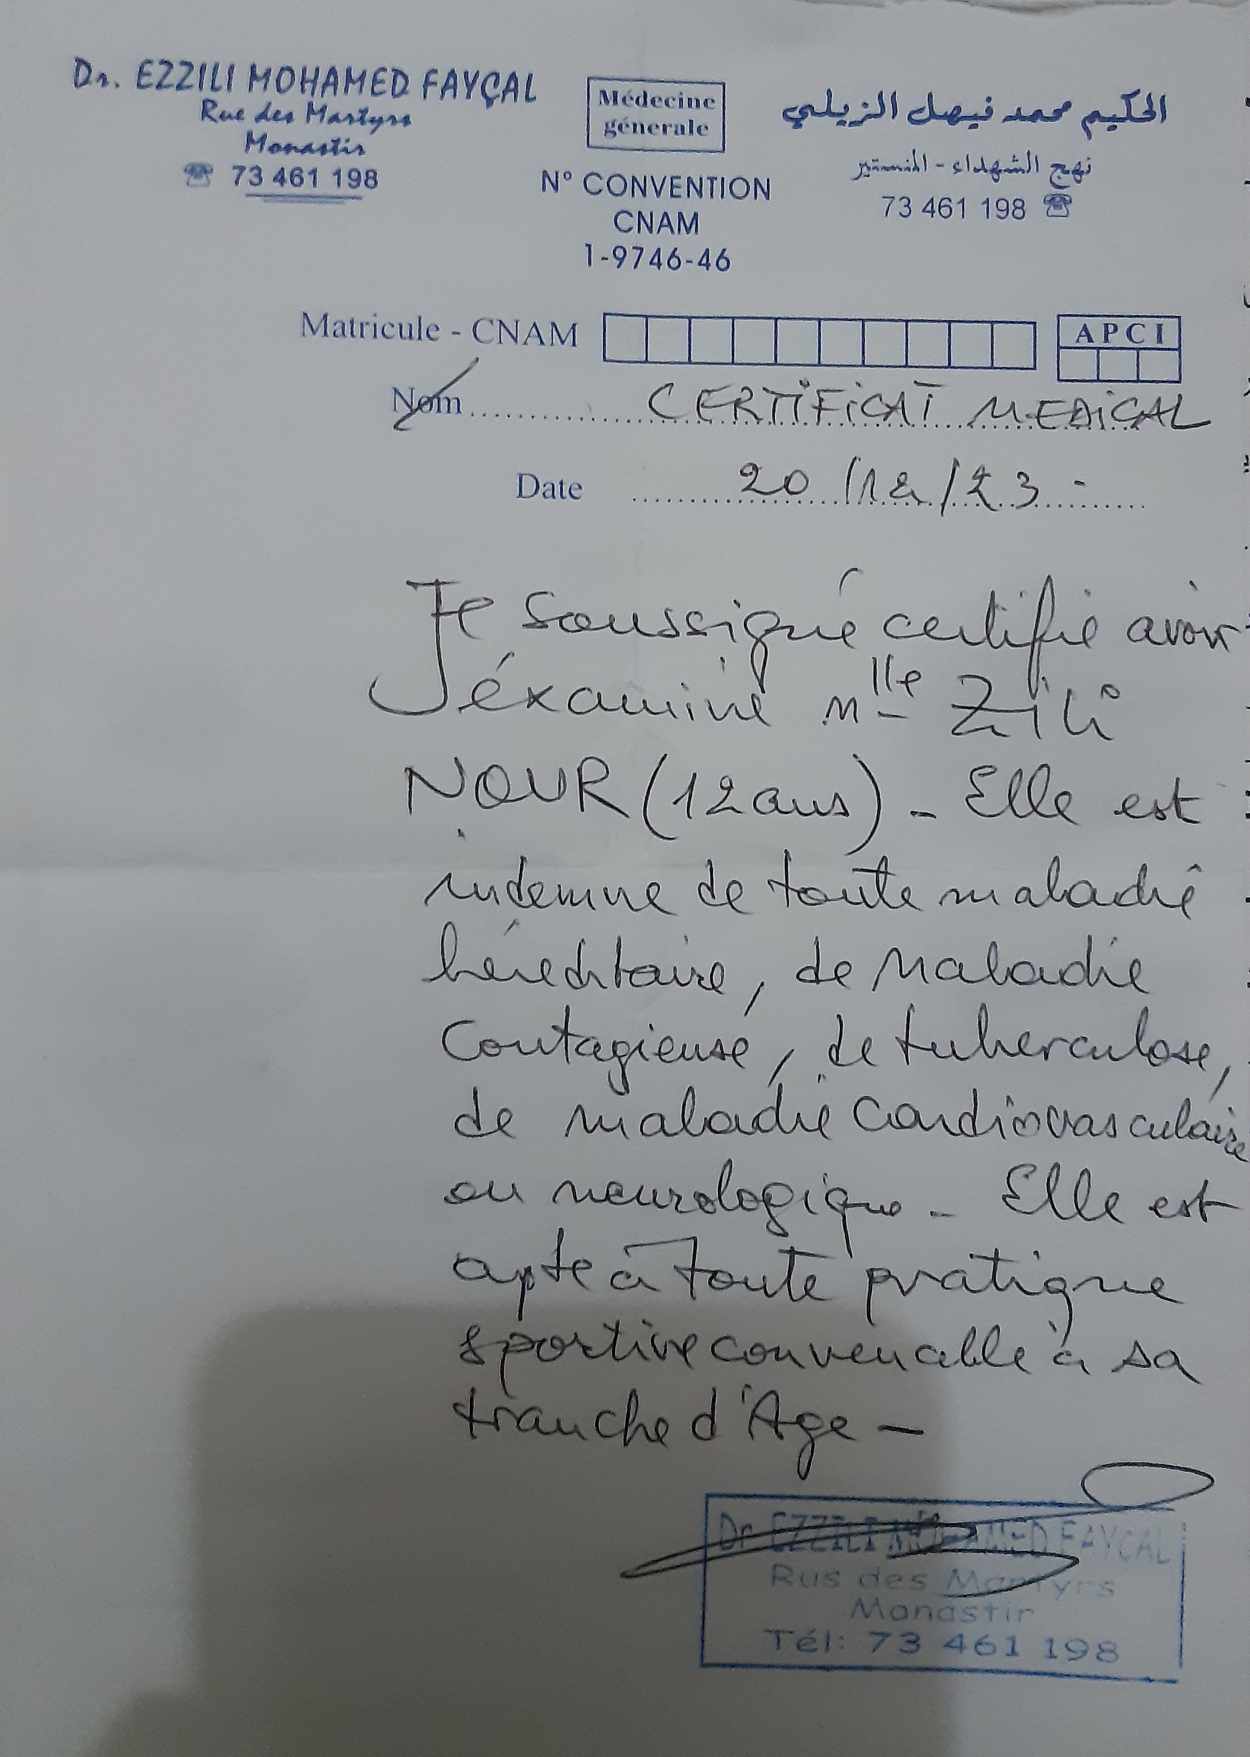 Dr. EZZILI MOHAMED FAYÇAL
Rue des Martyrs
Monastir
☎ 73 461 198
Médecine
génerale
N° CONVENTION
CNAM
1-9746-46
الحكيم محمد فيصل الزيلي
نهج الشهداء - المنستير
73 461 198 ☎
Matricule - CNAM
APCI
Nom CERTIFICAT MEDICAL
Date 20/12/23 -
Je soussigné certifie avoir
éxaminé Mlle Zili
NOUR (12 ans) - Elle est
indemne de toute maladie
héréditaire, de maladie
Contagieuse, de tuberculose,
de maladie cardiovasculaire
ou neurologique - Elle est
apte à toute pratique
sportive convenable à sa
tranche d'Age -
Dr EZZILI MOHAMED FAYCAL
Rus des Martyrs
Monastir
Tél: 73 461 198